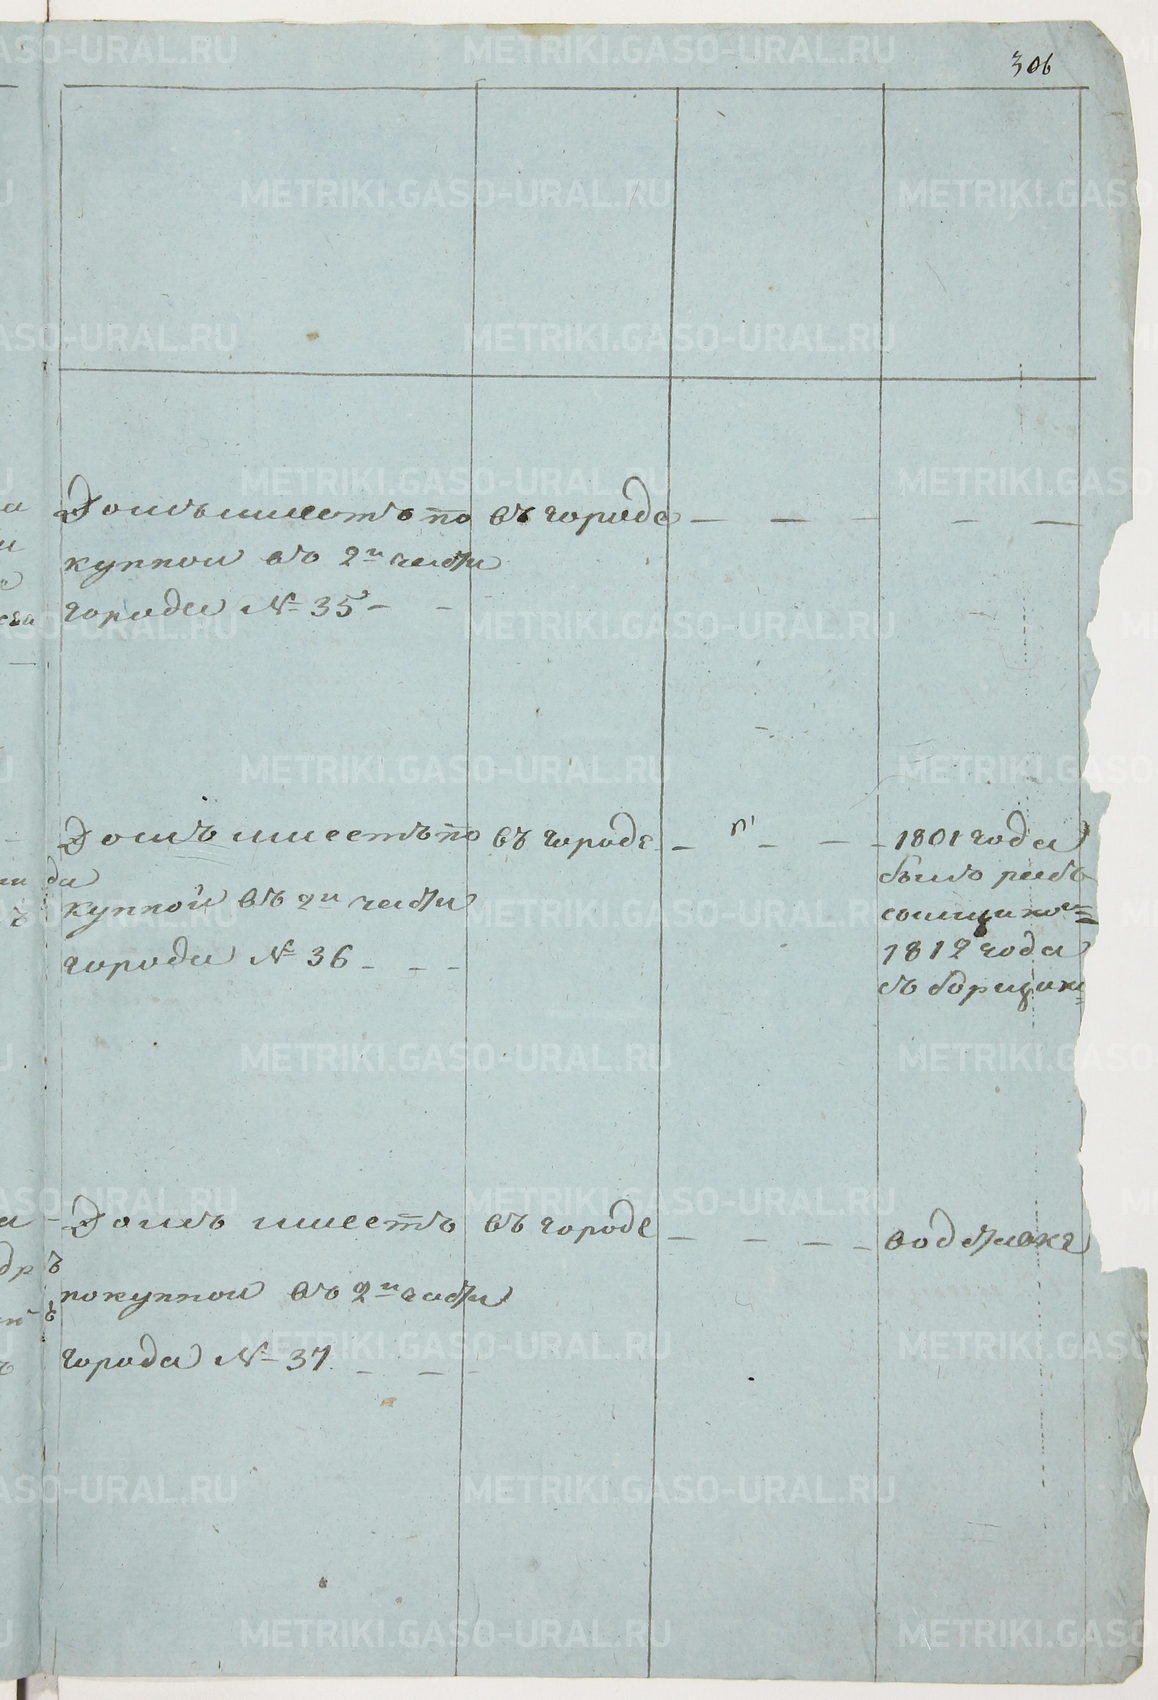 306
Домъ имеетъ по
въ городе
купной въ 2й части
города № 35
Домъ имеетъ по
въ городе
1801 года
купной въ 2й части
былъ
города № 36
1812 года
Домъ имеетъ
въ городе
покупной въ 2й части
города № 37
METRIKI.GASO-URAL.RU